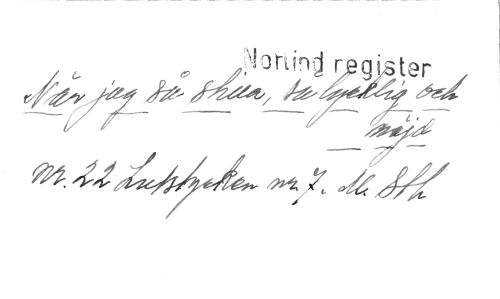 Norlind register
När jag så skua, så lycklig och
nöjd
nr. 22 Lutstycken nr. 7. M. Sth